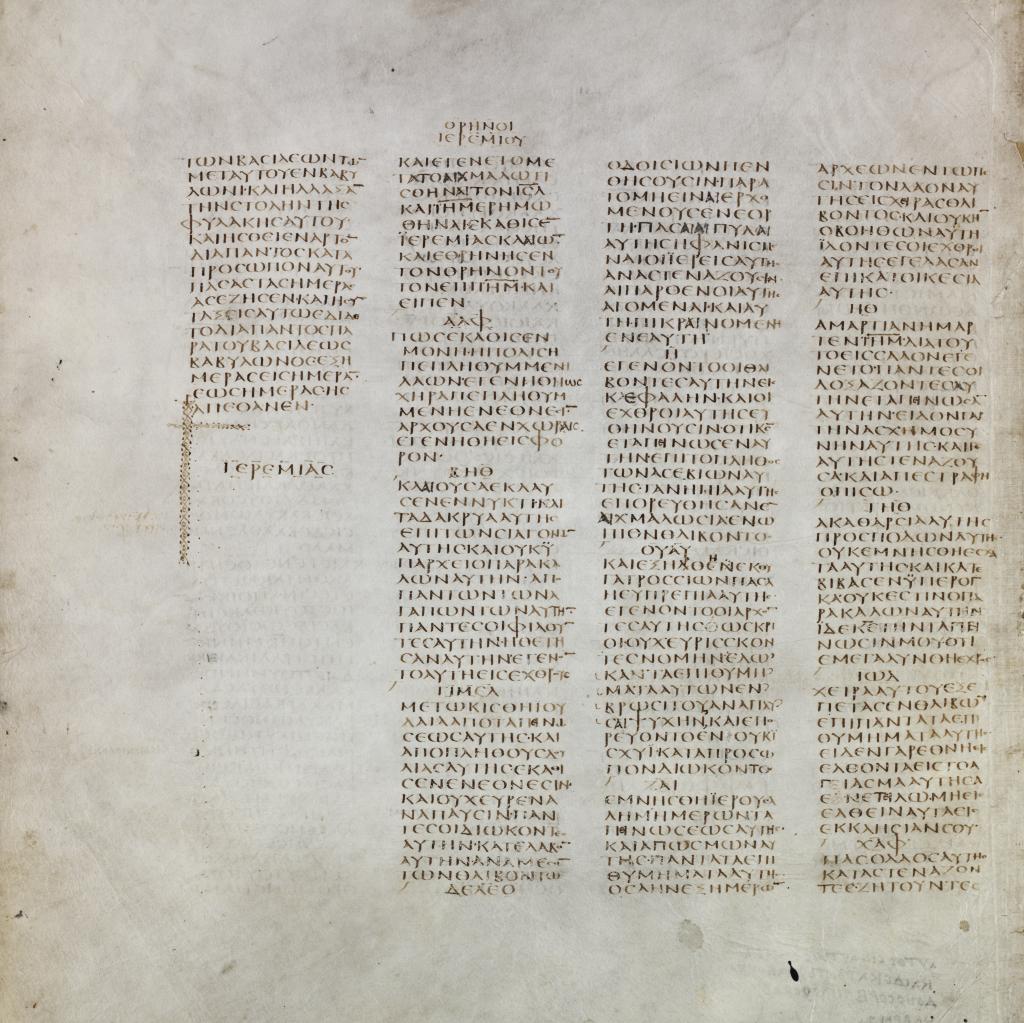 ΘΡΗΝΟΙ
ΙΕΡΕΜΙΟΥ
ΤΩΝΒΑCΙΛΕΩΝΤΩ
ΜΕΤΑΥΤΟΥΕΝΒΑΒΥ
ΛΩΝΙ·ΚΑΙΗΛΛΑΞΑ
ΤΗΝCΤΟΛΗΝΤΗC
ΦΥΛΑΚΗCΑΥΤΟΥ·
ΚΑΙΗCΘΙΕΝΑΡΤΟ
ΔΙΑΠΑΝΤΟCΚΑΤΑ
ΠΡΟCΩΠΟΝΑΥΤΟΥ·
ΠΑCΑCΤΑCΗΜΕΡΑC
ΑCΕΖΗCΕΝ·ΚΑΙΗCΥ
ΤΑΞΕΙCΑΥΤΩΕΔΙΔΟ
ΤΟΔΙΑΠΑΝΤΟCΠΑ
ΡΑΤΟΥΒΑCΙΛΕΩC
ΒΑΒΥΛΩΝΟCΕΞΗ
ΜΕΡΑCΕΙCΗΜΕΡΑ
ΕΩCΗΜΕΡΑCΗC
ΑΠΕΘΑΝΕΝ·
ΙΕΡΕΜΙΑC
ΚΑΙΕΓΕΝΕΤΟΜΕ
ΤΑΤΟΑΙΧΜΑΛΩΤΙ
CΘΗΝΑΙΤΟΝΙCΛ
ΚΑΙΙΛΗΜΕΡΗΜΩ
ΘΗΝΑΙΕΚΑΘΙCΕ
ΪΕΡΕΜΙΑCΚΛΑΙΩ
ΚΑΙΕΘΡΗΝΗCΕΝ
ΤΟΝΘΡΗΝΟΝΤΟΥ
ΤΟΝΕΠΙΙΛΗΜΚΑΙ
ΕΙΠΕΝ·
ΑΛΦ
ΠΩCΕΚΑΘΙCΕΝ
ΜΟΝΗΗΠΟΛΙCΗ
ΠΕΠΛΗΘΥΜΜΕΝΗ
ΛΑΩΝ·ΕΓΕΝΗΘΗΩC
ΧΗΡΑΠΕΠΛΗΘΥΜ
ΜΕΝΗΕΝΕΘΝΕCΙ
ΑΡΧΟΥCΑΕΝΧΩΡΑΙC
ΕΓΕΝΗΘΗΕΙCΦΟ
ΡΟΝ·
ΒΗΘ
ΚΛΑΙΟΥCΑΕΚΛΑΥ
CΕΝΕΝΝΥΚΤΙ·ΚΑΙ
ΤΑΔΑΚΡΥΑΑΥΤΗC
ΕΠΙΤΩΝCΙΑΓΟΝΩ
ΑΥΤΗCΚΑΙΟΥΚΫ
ΠΑΡΧΕΙΟΠΑΡΑΚΑ
ΛΩΝΑΥΤΗΝ·ΑΠΟ
ΠΑΝΤΩΝΤΩΝΑ
ΓΑΠΩΝΤΩΝΑΥΤΗ
ΠΑΝΤΕCΟΙΦΙΛΟΥ
ΤΕCΑΥΤΗΝΗΘΕΤΗ
CΑΝΑΥΤΗΝΕΓΕΝΟ
ΤΟΑΥΤΗΕΙCΕΧΘΡΟΥC
ΓΙΜΕΛ
ΜΕΤΩΚΙCΘΗΙΟΥ
ΔΑΙΑΑΠΟΤΑΠΕΙΝΩ
CΕΩCΑΥΤΗC·ΚΑΙ
ΑΠΟΠΛΗΘΟΥCΔΟΥ
ΛΙΑCΑΥΤΗCΕΚΑΘΙ
CΕΝΕΝΕΘΝΕCΙΝ
ΚΑΙΟΥΧΕΥΡΕΝΑ
ΝΑΠΑΥCΙΝ·ΠΑΝ
ΤΕCΟΙΔΙΩΚΟΝΤΕC
ΑΥΤΗΝ·ΚΑΤΕΛΑΒΟ
ΑΥΤΗΝΑΝΑΜΕCΟ
ΤΩΝΘΛΙΒΟΝΤΩ
ΔΕΛΕΘ
ΟΔΟΙCΙΩΝΠΕΝ
ΘΗCΟΥCΙΝ·ΠΑΡΑ
ΤΟΜΗΕΙΝΑΙΕΡΧΟ
ΜΕΝΟΥCΕΝΕΟΡ
ΤΗ·ΠΑCΑΙΑΙΠΥΛΑΙ
ΑΥΤΗCΗΦΑΝΙCΜΕ
ΝΑΙΟΙΪΕΡΕΙCΑΥΤΗC
ΑΝΑCΤΕΝΑΖΟΥCΙΝ·
ΑΙΠΑΡΘΕΝΟΙΑΥΤΗC
ΑΓΟΜΕΝΑΙ·ΚΑΙΑΥ
ΤΗΠΙΚΡΑΙΝΟΜΕΝΗ
ΕΝΕΑΥΤΗ
Η
ΕΓΕΝΟΝΤΟΟΙΘΛΙ
ΒΟΝΤΕCΑΥΤΗΝΕΙC
ΚΕΦΑΛΗΝ·ΚΑΙΟΙ
ΕΧΘΡΟΙΑΥΤΗCΕΥ
ΘΗΝΟΥCΙΝ·ΟΤΙΚC
ΕΤΑΠΙΝΩCΕΝΑΥ
ΤΗΝΕΠΙΤΟΠΛΗΘΟC
ΤΩΝΑCΕΒΙΩΝΑΥ
ΤΗC·ΤΑΝΗΠΙΑΑΥΤΗC
ΕΠΟΡΕΥΘΗCΑΝΕ
ΑΙΧΜΑΛΩCΙΑΕΝΩ
ΠΙΟΝΘΛΙΒΟΝΤΟC
ΟΥΑΥ
ΚΑΙΕΞΗΛΘΕΝΕΚΘΥ
ΓΑΤΡΟCCΙΩΝΠΑCΑ
ΗΕΥΠΡΕΠΙΑΑΥΤΗC
ΕΓΕΝΟΝΤΟΟΙΑΡΧΟ
ΤΕCΑΥΤΗCΩCΚΡΙ
ΟΙΟΥΧΕΥΡΙCΚΟΝ
ΤΕCΝΟΜΗΝ
ΖΑΙ
ΕΜΝΗCΘΗΪΕΡΟΥCΑ
ΛΗΜΗΜΕΡΩΝΤΑ
ΠΙΝΩCΕΩCΑΥΤΗC
ΚΑΙΑΠΩCΜΩΝΑΥ
ΤΗC·ΠΑΝΤΑΤΑΕΠΙ
ΘΥΜΗΜΑΤΑΑΥΤΗC
ΟCΑΗΝΕΞΗΜΕΡΩ
ΑΡΧΕΩΝΕΝΤΩΠΕ
CΙΝΤΟΝΛΑΟΝΑΥ
ΤΗCΕΙCΧΙΡΑCΘΛΙ
ΒΟΝΤΟCΚΑΙΟΥΚΗ
ΟΒΟΗΘΩΝΑΥΤΗ
ΪΔΟΝΤΕCΟΙΕΧΘΡΟΙ
ΑΥΤΗCΕΓΕΛΑCΑΝ
ΕΠΙΚΑΤΟΙΚΕCΙΑ
ΑΥΤΗC·
ΗΘ
ΑΜΑΡΤΙΑΝΗΜΑΡ
ΤΕΝΙΛΗΜΔΙΑΤΟΥ
ΤΟΕΙCCΑΛΟΝΕΓΕ
ΝΕΤΟΠΑΝΤΕCΟΙ
ΔΟΞΑΖΟΝΤΕCΑΥ
ΤΗΝΕΤΑΠΙΝΩCΑ
ΑΥΤΗΝ·ΕΙΔΟΝΓΑΡ
ΤΗΝΑCΧΗΜΟCΥ
ΝΗΝΑΥΤΗC·ΚΑΙΓΕ
ΑΥΤΗCΤΕΝΑΖΟΥ
CΑΚΑΙΑΠΕCΤΡΑΦΗ
ΟΠΙCΩ·
ΤΗΘ
ΑΚΑΘΑΡCΙΑΑΥΤΗC
ΠΡΟCΠΟΔΩΝΑΥΤΗC
ΟΥΚΕΜΝΗCΘΗΕCΧΑ
ΤΑΑΥΤΗC·ΚΑΙΚΑΤΕ
ΒΙΒΑCΕΝΫΠΕΡΟΓ
ΚΑΟΥΚΕCΤΙΝΟΠΑ
ΡΑΚΑΛΩΝΑΥΤΗΝ
ΪΔΕΚΕΤΗΝΤΑΠΕΙ
ΝΩCΙΝΜΟΥΟΤΙ
ΕΜΕΓΑΛΥΝΘΗΕΧΘΡΟC
ΙΩΔ
ΧΕΙΡΑΑΥΤΟΥΕΞΕ
ΠΕΤΑCΕΝΘΛΙΒΩ
ΕΠΙΠΑΝΤΑΤΑΕΠΙ
ΘΥΜΗΜΑΤΑΑΥΤΗC
ΕΙΔΕΝΓΑΡΕΘΝΗ
ΕΛΘΟΝΤΑΕΙCΤΟΑ
ΓΙΑCΜΑΑΥΤΗCΑ
ΕΝΕΤΙΛΩΜΗΕΙC
ΕΛΘΕΙΝΑΥΤΑΕΙC
ΕΚΚΛΗCΙΑΝCΟΥ·
ΧΑΦ
ΠΑCΟΛΑΟCΑΥΤΗC
ΚΑΤΑCΤΕΝΑΖΟΝ
ΤΕCΖΗΤΟΥΝΤΕC